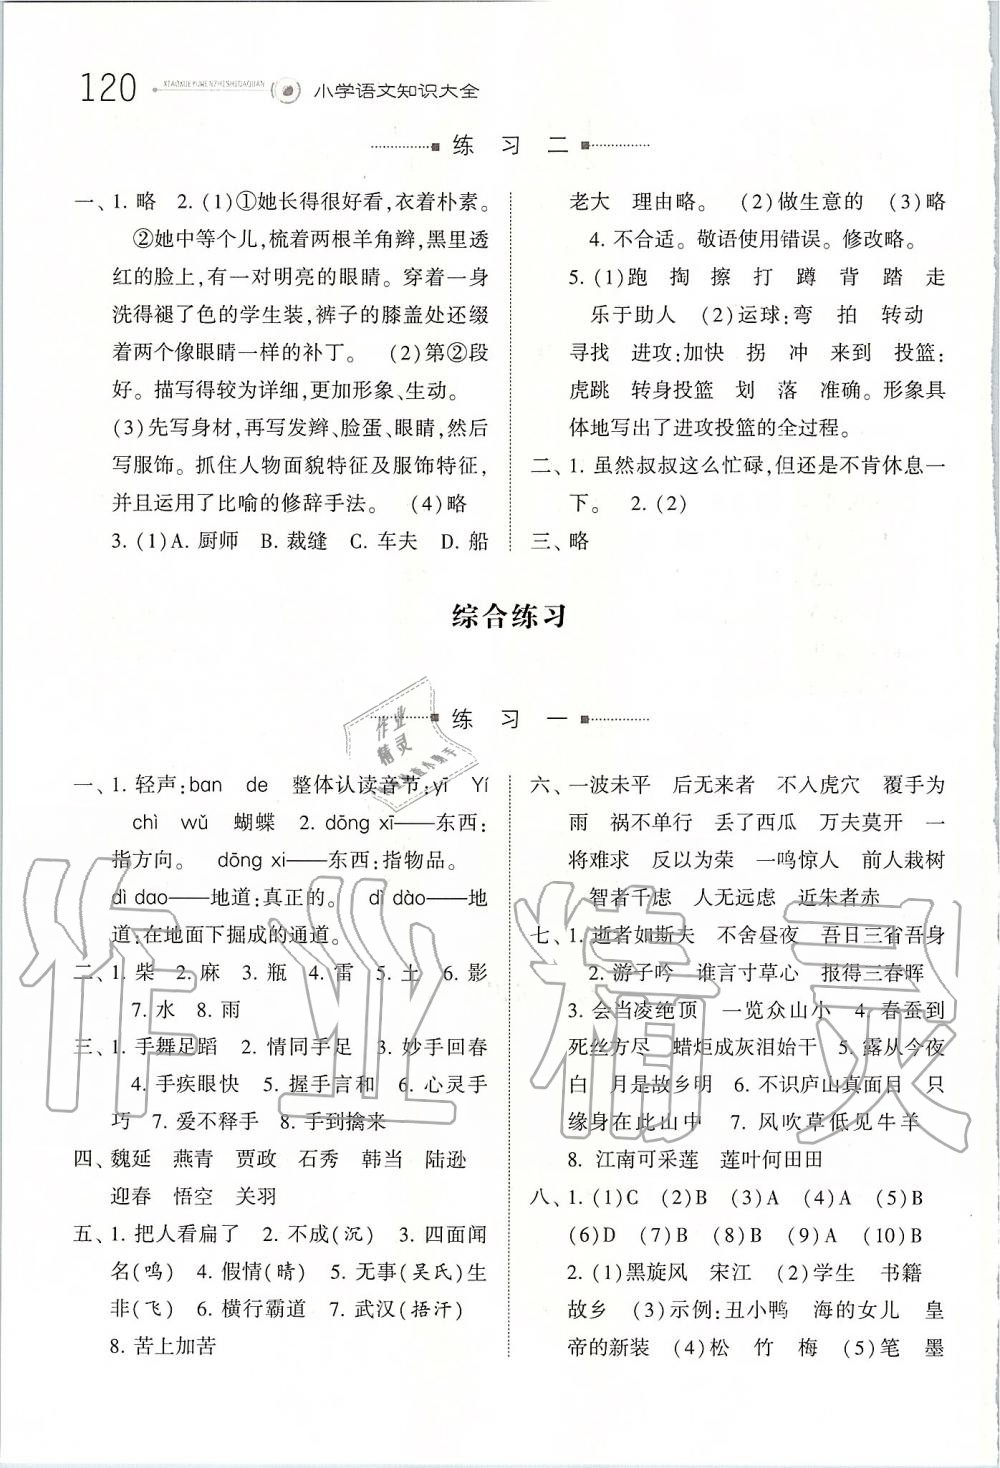 120 XIAOXUEYUWENZHISHIDAQUAN 小学语文知识大全
练 习 二
一、1. 略 2. (1)①她长得很好看,衣着朴素。
②她中等个儿,梳着两根羊角辫,黑里透
红的脸上,有一对明亮的眼睛。穿着一身
洗得褪了色的学生装,裤子的膝盖处还缀
着两个像眼睛一样的补丁。 (2)第②段
好。描写得较为详细,更加形象、生动。
(3)先写身材,再写发辫、脸蛋、眼睛,然后
写服饰。抓住人物面貌特征及服饰特征,
并且运用了比喻的修辞手法。 (4)略
3. (1)A. 厨师 B. 裁缝 C. 车夫 D. 船
老大 理由略。 (2)做生意的 (3)略
4. 不合适。敬语使用错误。修改略。
5. (1)跑 掏 擦 打 蹲 背 踏 走
乐于助人 (2)运球:弯 拍 转动
寻找 进攻:加快 拐 冲 来到 投篮:
虎跳 转身投篮 划 落 准确。形象具
体地写出了进攻投篮的全过程。
二、1. 虽然叔叔这么忙碌,但还是不肯休息一
下。 2. (2)
三、略
综合练习
练 习 一
一、1. 轻声:ban de 整体认读音节:yī Yí
chì wǔ 蝴蝶 2. dōng xī——东西:
指方向。 dōng xi——东西:指物品。
dì dao——地道:真正的。 dì dào——地
道:在地面下掘成的通道。
二、1. 柴 2. 麻 3. 瓶 4. 雷 5. 土 6. 影
7. 水 8. 雨
三、1. 手舞足蹈 2. 情同手足 3. 妙手回春
4. 手疾眼快 5. 握手言和 6. 心灵手
巧 7. 爱不释手 8. 手到擒来
四、魏延 燕青 贾政 石秀 韩当 陆逊
迎春 悟空 关羽
五、1. 把人看扁了 2. 不成(沉) 3. 四面闻
名(鸣) 4. 假情(晴) 5. 无事(吴氏)生
非(飞) 6. 横行霸道 7. 武汉(捂汗)
8. 苦上加苦
六、一波未平 后无来者 不入虎穴 覆手为
雨 祸不单行 丢了西瓜 万夫莫开 一
将难求 反以为荣 一鸣惊人 前人栽树
智者千虑 人无远虑 近朱者赤
七、1. 逝者如斯夫 不舍昼夜 吾日三省吾身
2. 游子吟 谁言寸草心 报得三春晖
3. 会当凌绝顶 一览众山小 4. 春蚕到
死丝方尽 蜡炬成灰泪始干 5. 露从今夜
白 月是故乡明 6. 不识庐山真面目 只
缘身在此山中 7. 风吹草低见牛羊
8. 江南可采莲 莲叶何田田
八、1. (1)C (2)B (3)A (4)A (5)B
(6)D (7)B (8)B (9)A (10)B
2. (1)黑旋风 宋江 (2)学生 书籍
故乡 (3)示例:丑小鸭 海的女儿 皇
帝的新装 (4)松 竹 梅 (5)笔 墨
作业
精灵
作业精灵